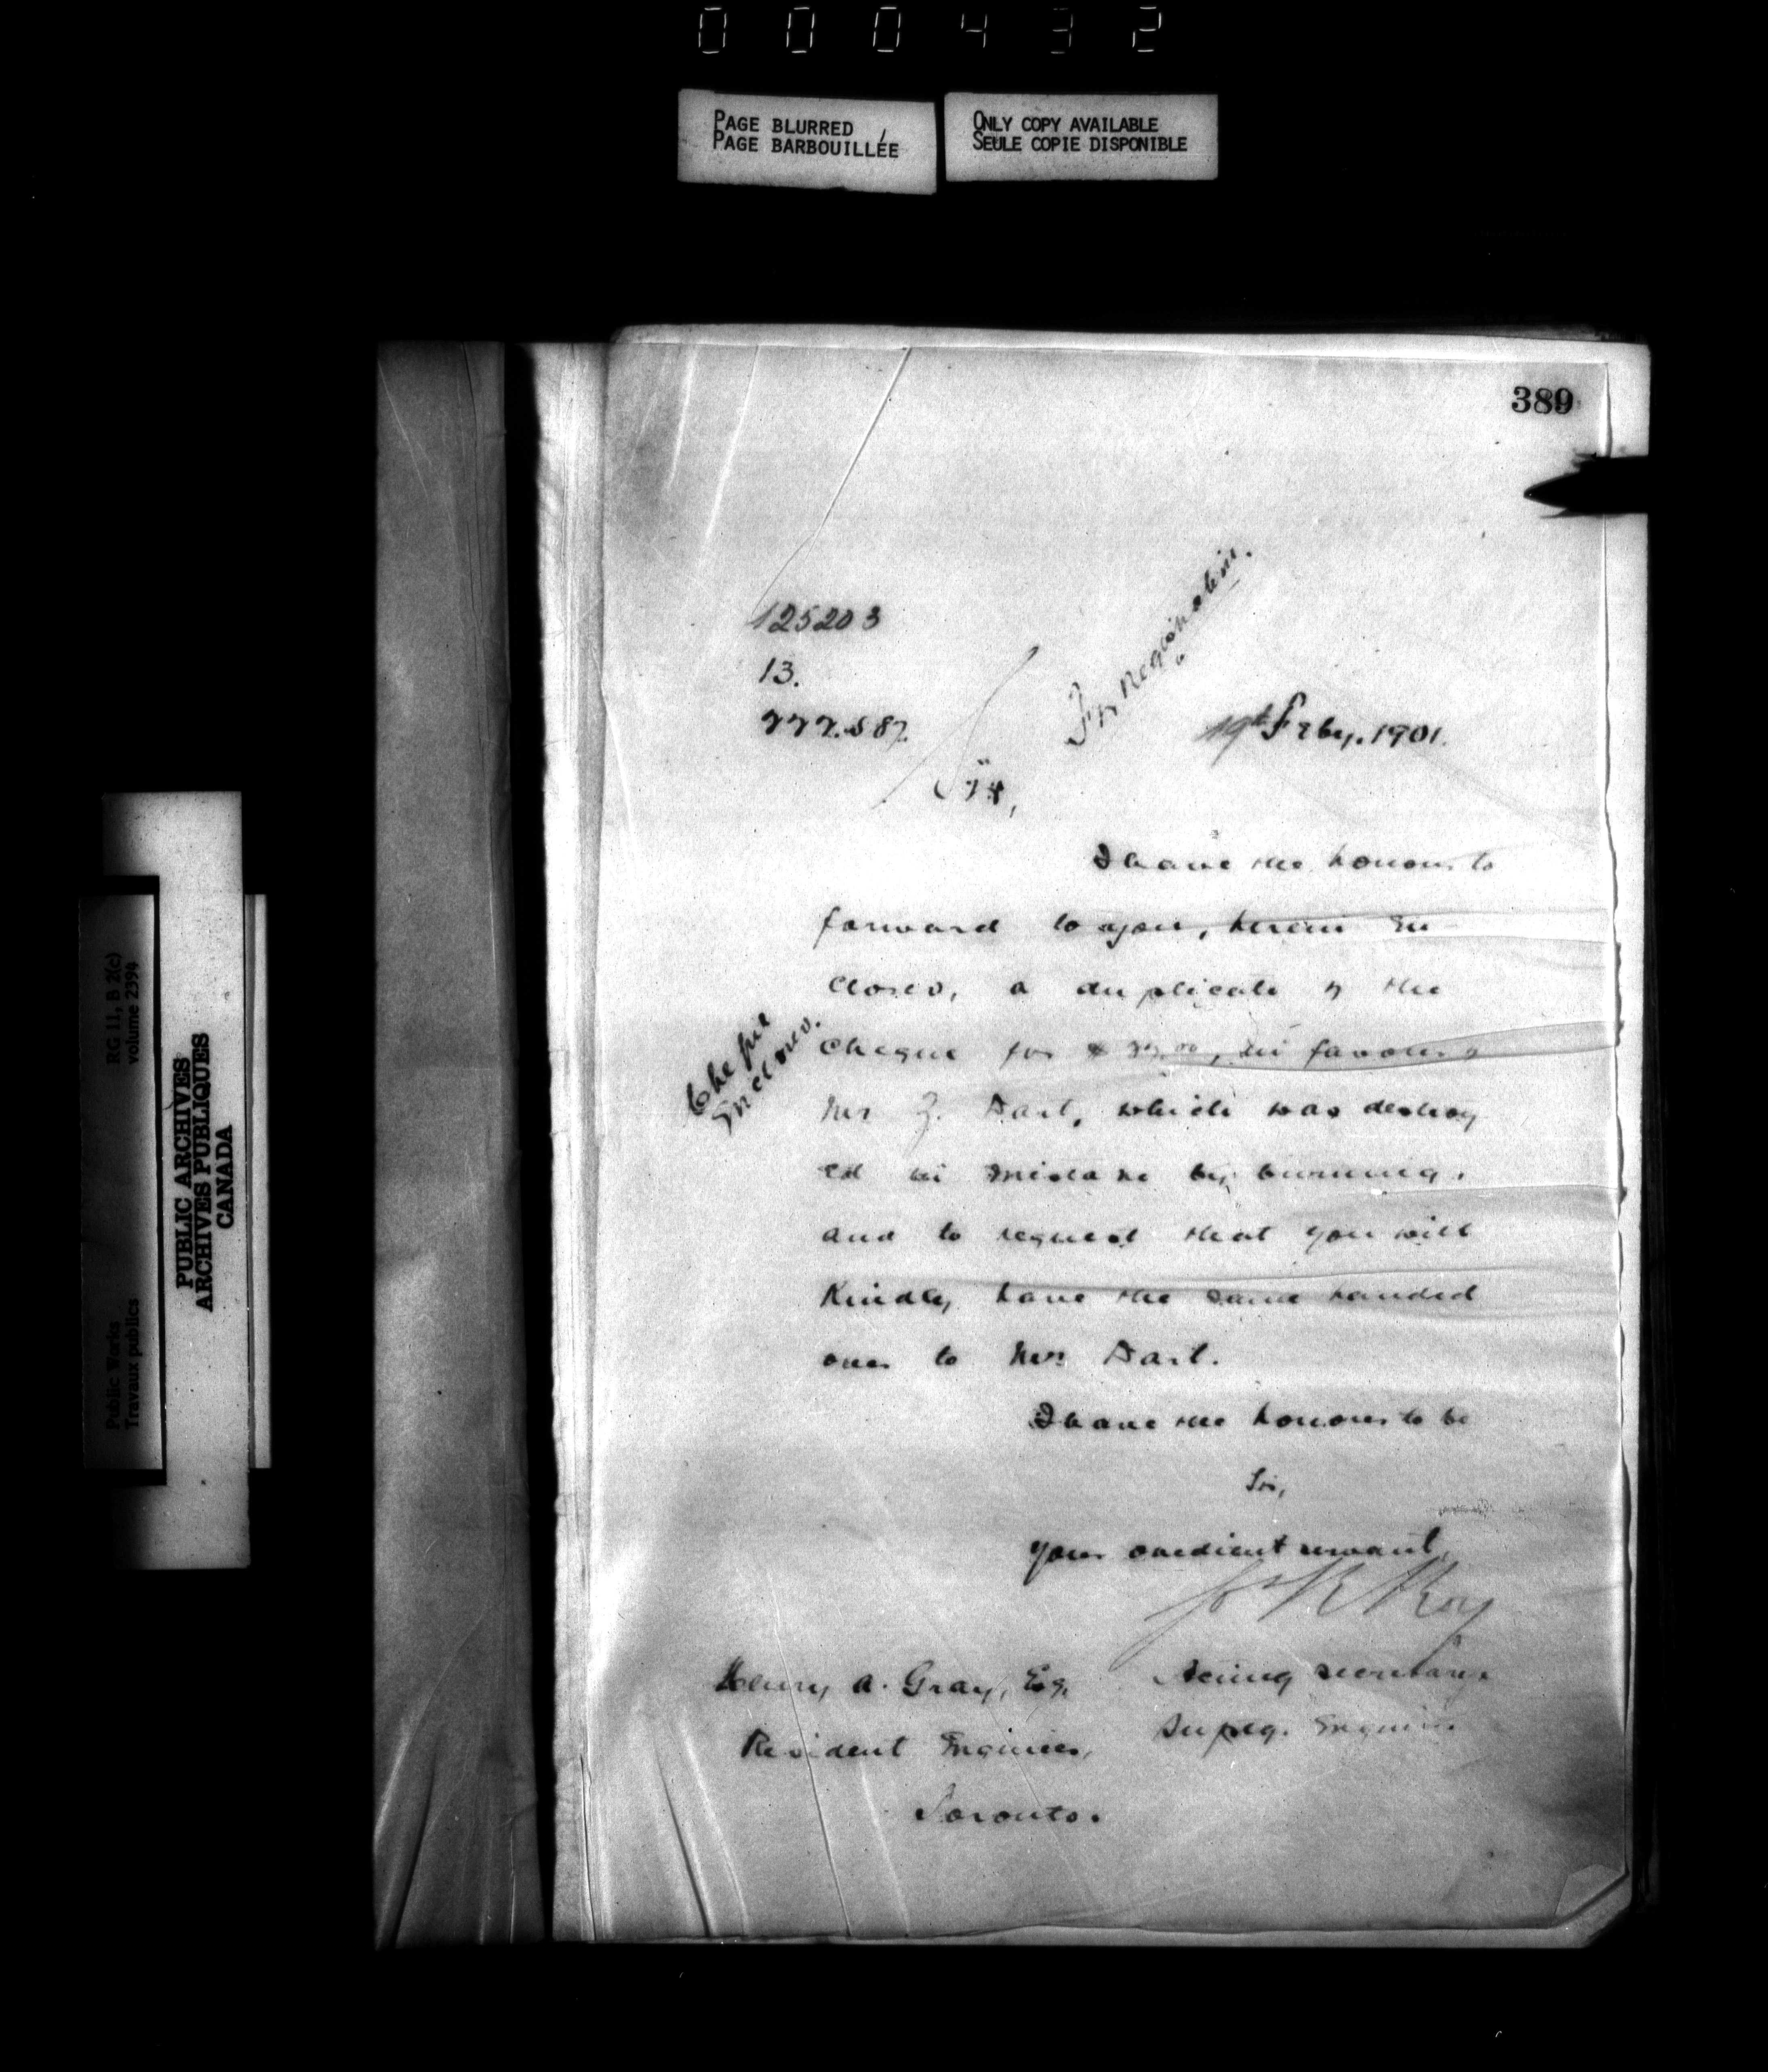 000432
PAGE BLURRED
PAGE BARBOUILLÉE
ONLY COPY AVAILABLE
SEULE COPIE DISPONIBLE
389
125203
13.
19th Feby. 1901.
Sir,
I have the honour to
forward to you, herein en
closed, a duplicate of the
Cheque for $ in favour of
Mr Z. Dart, which was destroy
ed in mistake by burning,
and to request that you will
Kindly have the same handed
over to Mr Dart.
Cheque
enclosed.
I have the honour to be
Sir,
your obedient servant,
Roy
Henry A. Gray, Esq.
Acting secretary.
Resident Engineer,
Toronto.
PUBLIC ARCHIVES
ARCHIVES PUBLIQUES
CANADA
RG 11, B 2(c)
volume 2394
Public Works
Travaux publics